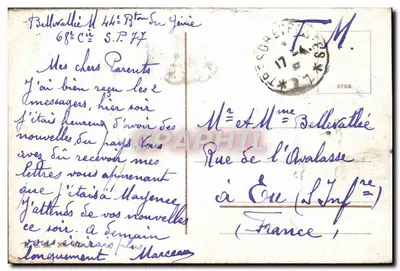 Bellevallée M 44e Bton du Génie
68e Cie S.P. 77
Mes chers Parents
J'ai bien reçu les 2
messages, hier soir
j'étais heureux d'avoir des
nouvelles du pays. Vous
avez dû recevoir mes
lettres vous apprenant
que j'étais à Mayence.
J'attends de vos nouvelles
ce soir. A demain
vous écrirais plus
longuement Marceau
F.M.
TRESOR ET POSTES
17-4
Mr et Mme Bellevallée
Rue de l'Avalasse
à Eu (S. Infre)
(France)